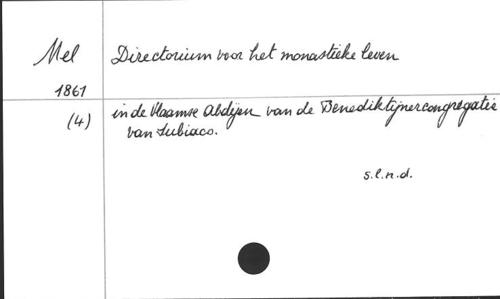 Mel Directorium voor het monastieke leven
1861
(4) in de Vlaamse Abdijen van de Benediktijnercongregatie
van Subiaco.
s.l.n.d.